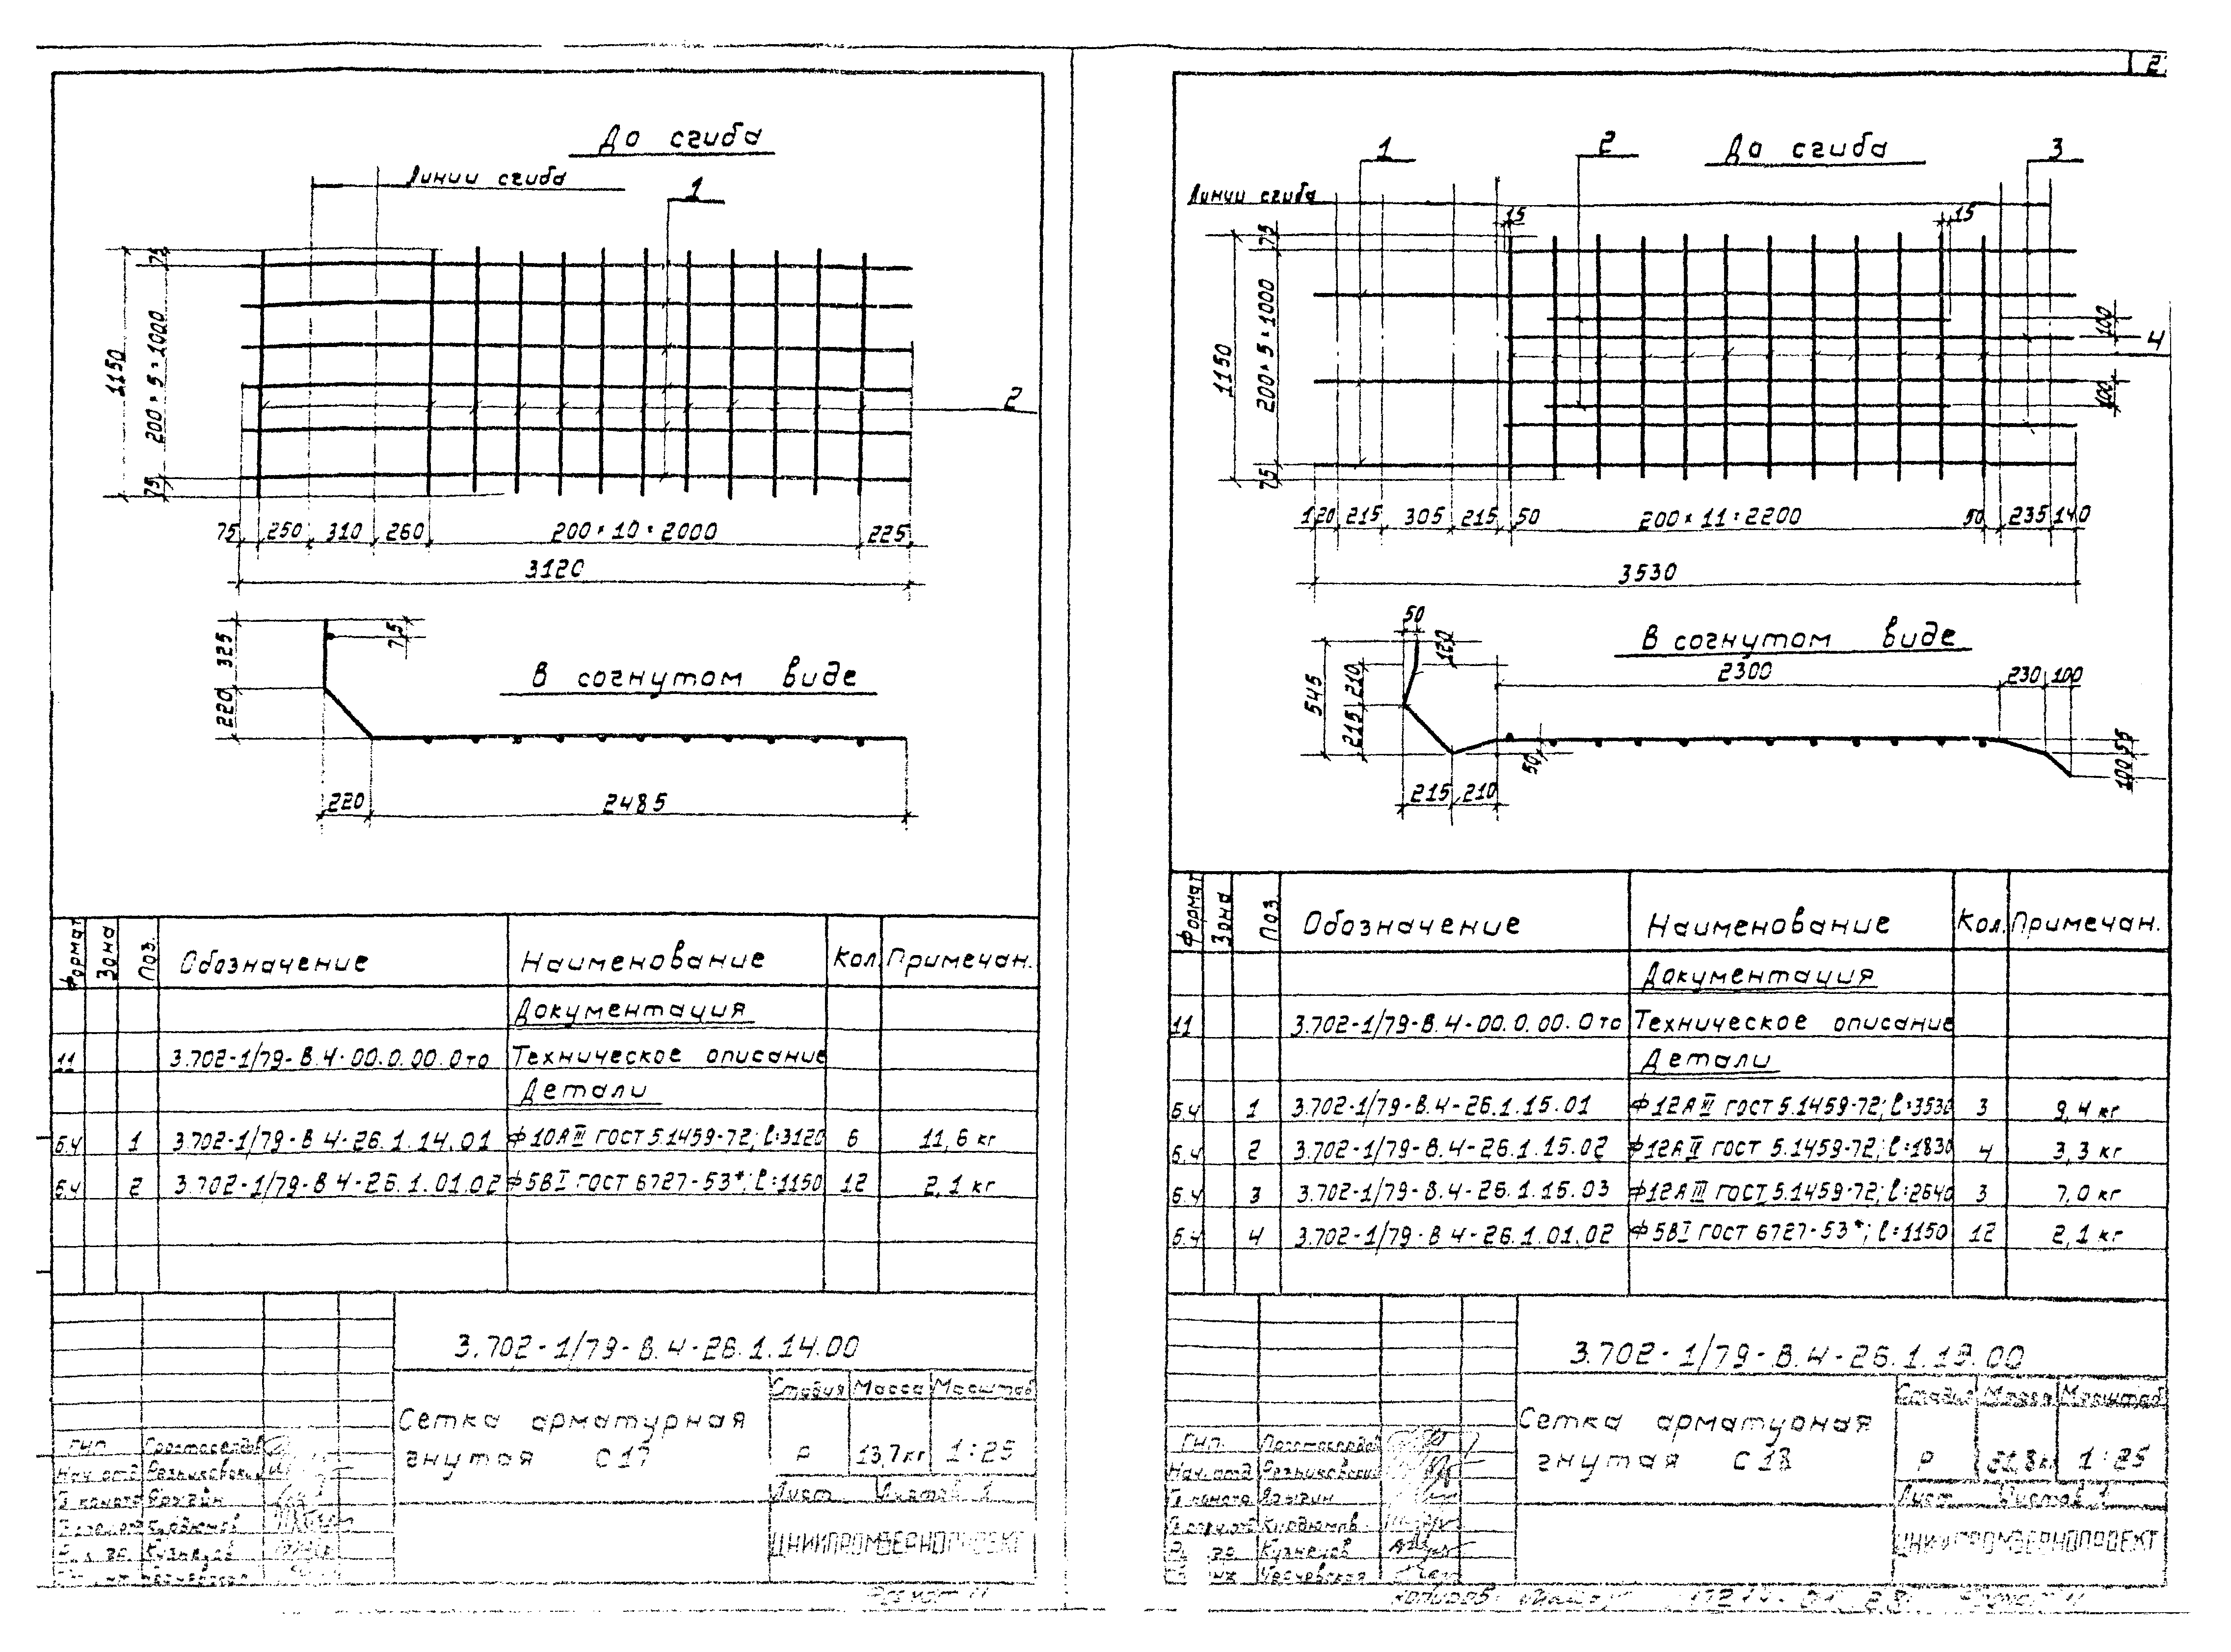 До сгиба
Линии сгиба
1
75
200×5=1000
1150
75
2
75 250 310 260 200×10=2000 225
3120
325
220
75
В согнутом виде
220 2485
Формат Зона Поз. Обозначение Наименование Кол. Примечан.
Документация
11 3.702-1/79-В.4-00.0.00.0то Техническое описание
Детали
б.ч 1 3.702-1/79-В 4-26.1.14.01 Ф10АIII ГОСТ 5.1459-72; ℓ=3120 6 11,6 кг
б.ч 2 3.702-1/79-В 4-26.1.01.02 Ф5ВI ГОСТ 6727-53*; ℓ=1150 12 2,1 кг
3.702-1/79-В.4-26.1.14.00
Сетка арматурная
гнутая С17
Стадия Масса Масштаб
Р 13,7кг 1:25
Лист Листов 1
ЦНИИПРОМЗЕРНОПРОЕКТ
ГИП
Нач. отд Резниковский
Кузнецов
Формат 11
2
1 2 До сгиба 3
Линии сгиба
15 15
75
200×5=1000
1150
75
100
4
100
120 215 305 215 50 200×11=2200 50 235 140
3530
50
120
545
210
215
В согнутом виде
2300 230 100
50
55
100
215 210
Формат Зона Поз. Обозначение Наименование Кол. Примечан.
Документация
11 3.702-1/79-В.4-00.0.00.0то Техническое описание
Детали
б.ч 1 3.702-1/79-В.4-26.1.15.01 Ф12АIII ГОСТ 5.1459-72; ℓ=3530 3 9,4 кг
б.ч 2 3.702-1/79-В.4-26.1.15.02 Ф12АII ГОСТ 5.1459-72; ℓ=1830 4 3,3 кг
б.ч 3 3.702-1/79-В.4-26.1.15.03 Ф12АIII ГОСТ 5.1459-72; ℓ=2640 3 7,0 кг
б.ч 4 3.702-1/79-В 4-26.1.01.02 Ф5ВI ГОСТ 6727-53*; ℓ=1150 12 2,1 кг
3.702-1/79-В.4-26.1.15.00
Сетка арматурная
гнутая С18
Стадия Масса Масштаб
Р 21,8кг 1:25
Лист Листов 1
ЦНИИПРОМЗЕРНОПРОЕКТ
ГИП
Нач. отд Резниковский
Кузнецов
Формат 11